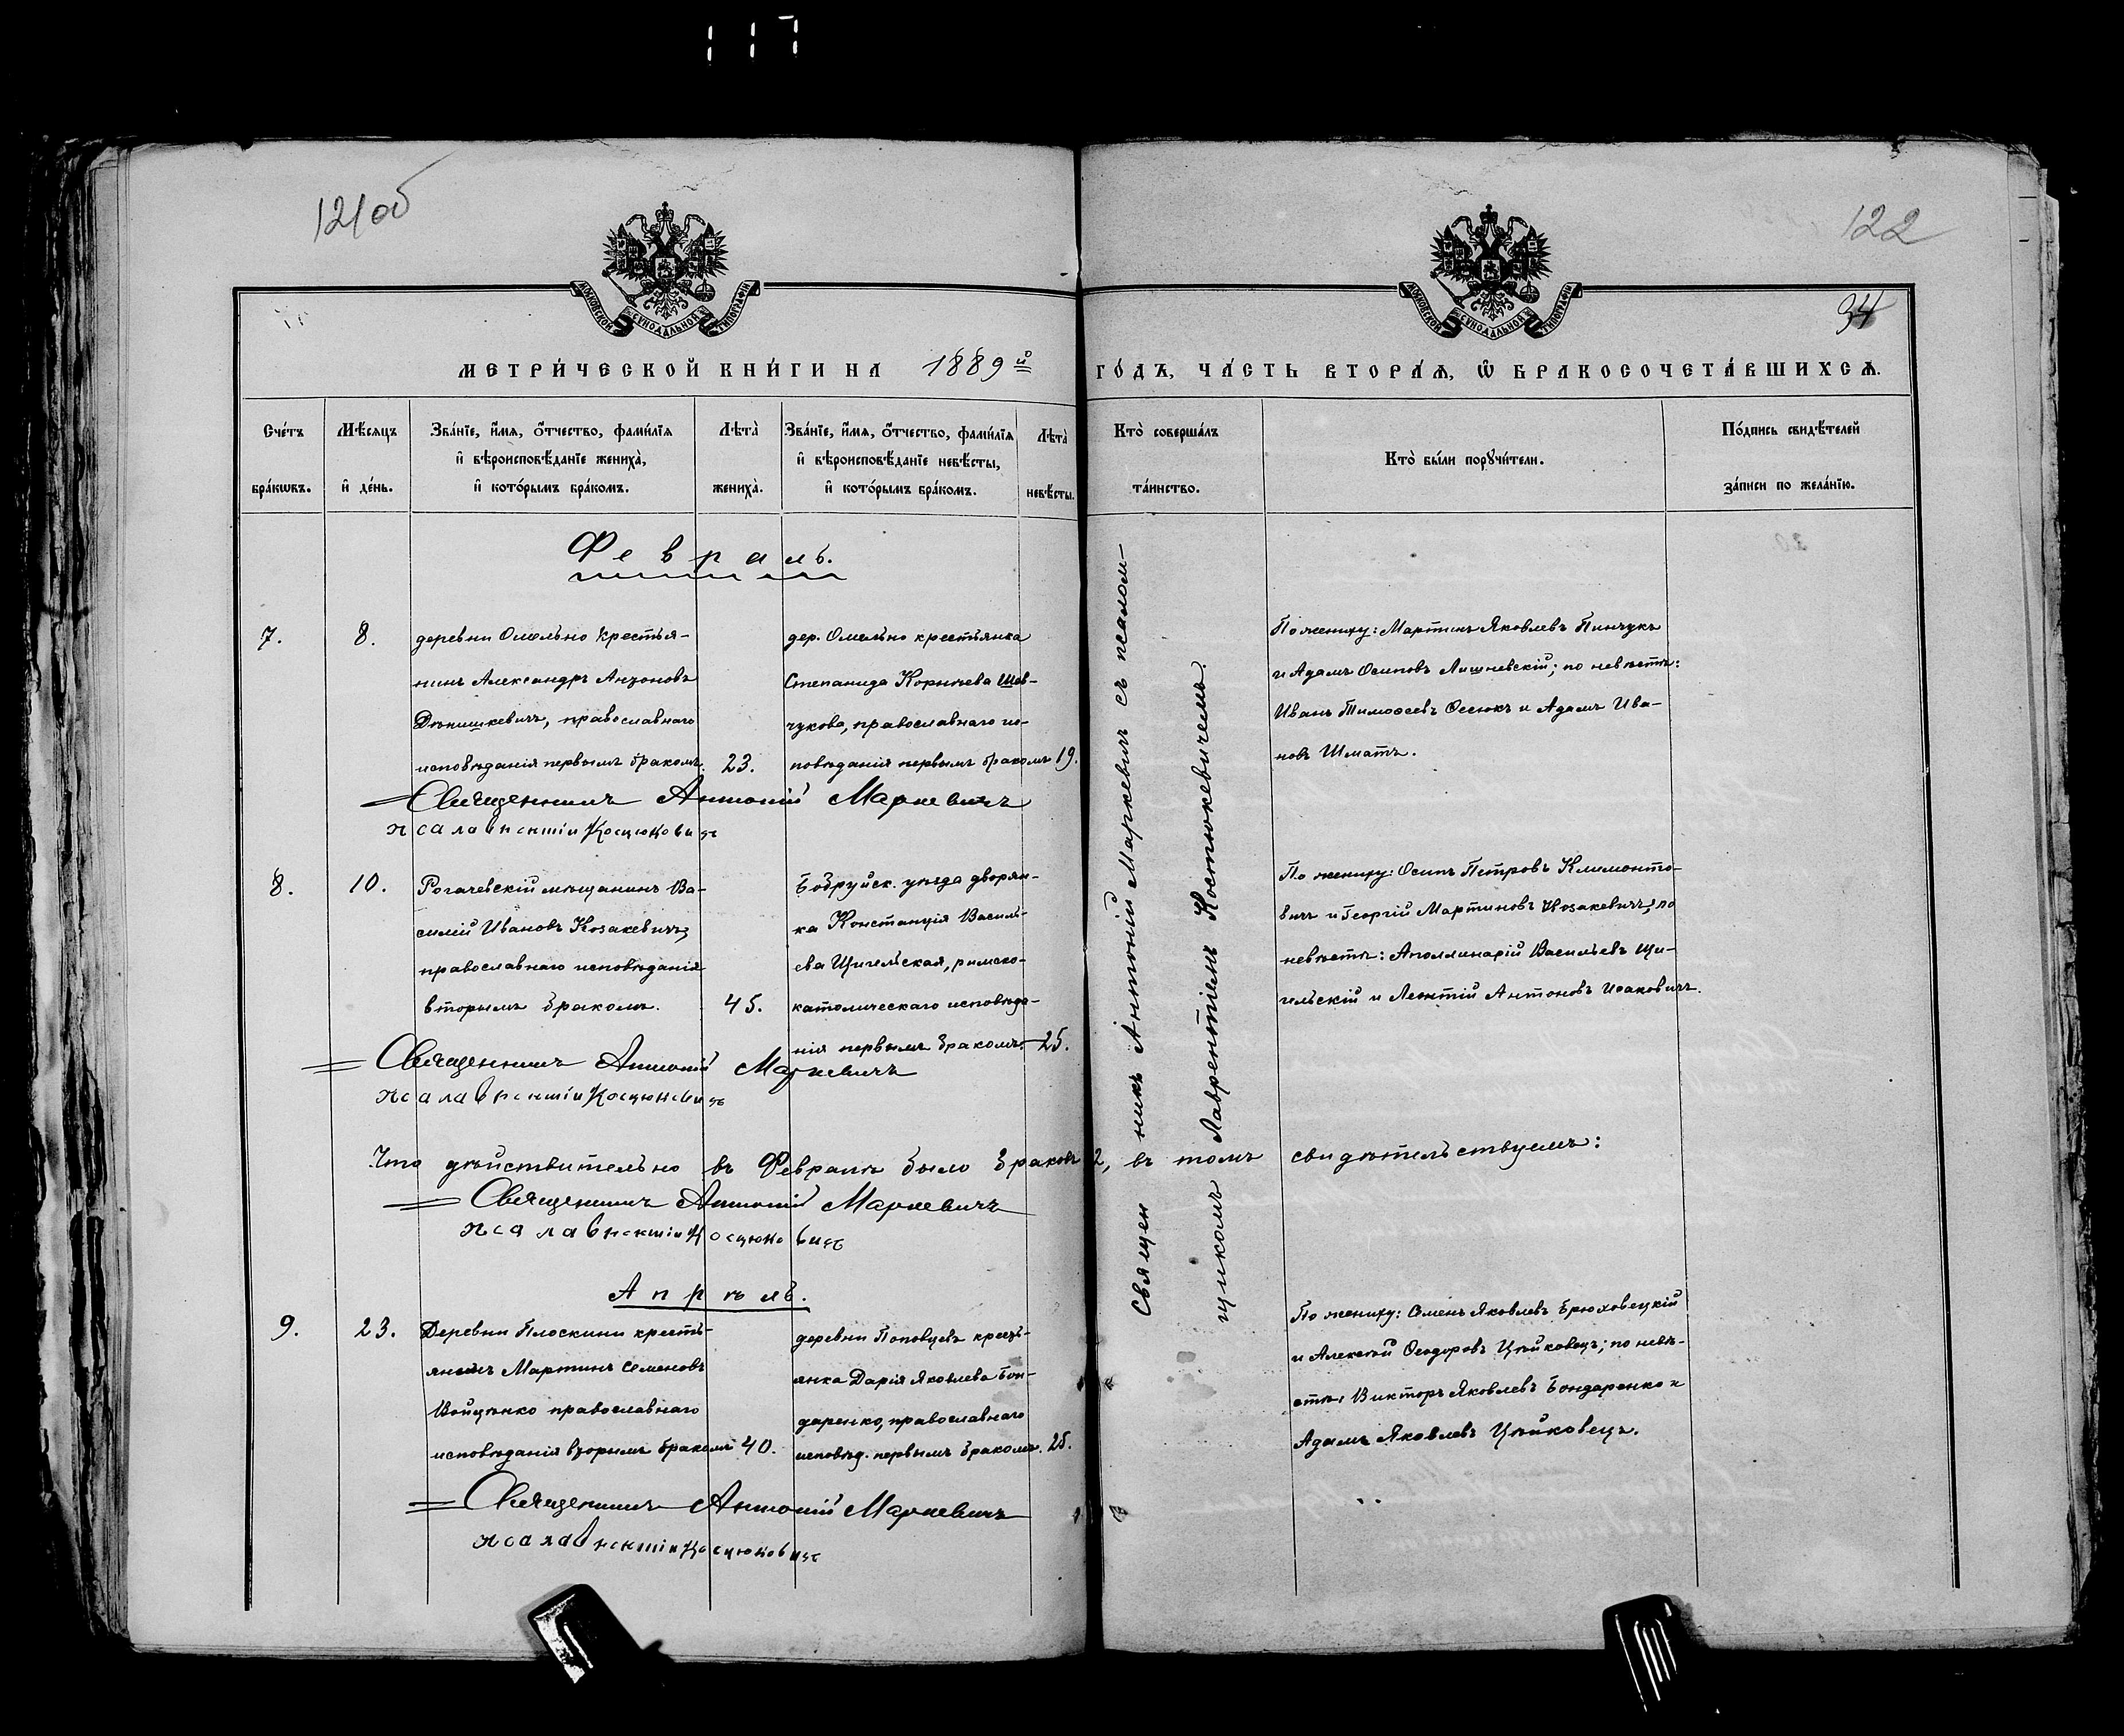 117
121об
122
34
МОСКОВСКОЙ СѴНОДАЛЬНОЙ ТИПОГРАФІИ
МОСКОВСКОЙ СѴНОДАЛЬНОЙ ТИПОГРАФІИ
МЕТРИ́ЧЕСКОЙ КНИ́ГИ НА 1889й ГО́ДЪ, ЧА́СТЬ ВТОРА́Я, Ѡ БРАКОСОЧЕТА́ВШИХСЯ.
Сче́тъ бра́кѡвъ.
Мѣ́сяцъ и де́нь.
Зва́нїе, и́мя, о́тчество, фами́лїя
и вѣроисповѣ́данїе жениха̀,
и кото́рымъ бра́комъ.
Лѣта̀ жениха̀.
Зва́нїе, и́мя, о́тчество, фами́лїя
и вѣроисповѣ́данїе невѣ́сты,
и кото́рымъ бра́комъ.
Лѣта̀ невѣ́сты.
Кто̀ соверша́лъ та́инство.
Кто̀ бы́ли порꙋчи́тели.
По́дпись свидѣ́телей за́писи по жела́нїю.
Февраль.
7.
8.
деревни Омельно крестья-
нинъ Александръ Антоновъ
Дѣнишкевичъ, православнаго
исповѣданія первымъ бракомъ.
23.
дер. Омельно крестьянка
Степанида Корнѣева Шев-
чукова, православнаго ис-
повѣданія первымъ бракомъ
19.
Священникъ Антоній Маркевичъ с псалом-
щикомъ Лаврентіемъ Костюкевичемъ.
По жениху: Мартинъ Яковлевъ Пинчукъ
и Адамъ Осиповъ Лишневскій; по невѣстѣ:
Иванъ Тимоѳеевъ Ѳесюкъ и Адамъ Ива-
новъ Шматъ.
Священникъ Антоній Маркевичъ
пса лаврентий Косцюкович
8.
10.
Рогачевскій мѣщанинъ Ва-
силій Ивановъ Козакевичъ,
православнаго исповѣданія
вторымъ бракомъ.
45.
Бобруйск. уѣзда дворян-
ка Констанція Василь-
ева Щигельская, римско-
католическаго исповѣда-
нія первымъ бракомъ.
25.
По жениху: Осипъ Петровъ Климонто-
вичъ и Георгій Мартиновъ Козакевичъ, по
невѣстѣ: Аполлинарій Васильевъ Щи-
гельскій и Леонтій Антоновъ Исаковичъ.
Священникъ Антоній Маркевичъ
Что дѣйствительно въ Февралѣ было браковъ 2, въ томъ свидѣтельствуемъ:
Священникъ Антоній Маркевичъ
Апрѣль.
9.
23.
Деревни Плоскини кресть-
янинъ Мартинъ Семеновъ
Войцѣнко православнаго
исповѣданія вторымъ бракомъ
40.
деревни Поповцевъ кресть-
янка Дарія Яковлева Бон-
даренко, православнаго
исповѣд. первымъ бракомъ.
25.
По жениху: Семенъ Яковлевъ Брюховецкій
и Алексѣй Ѳеодоровъ Цѣйковецъ; по невѣ-
стѣ, Викторъ Яковлевъ Бондаренко и
Адамъ Яковлевъ Цѣйковецъ.
Священникъ Антоній Маркевичъ